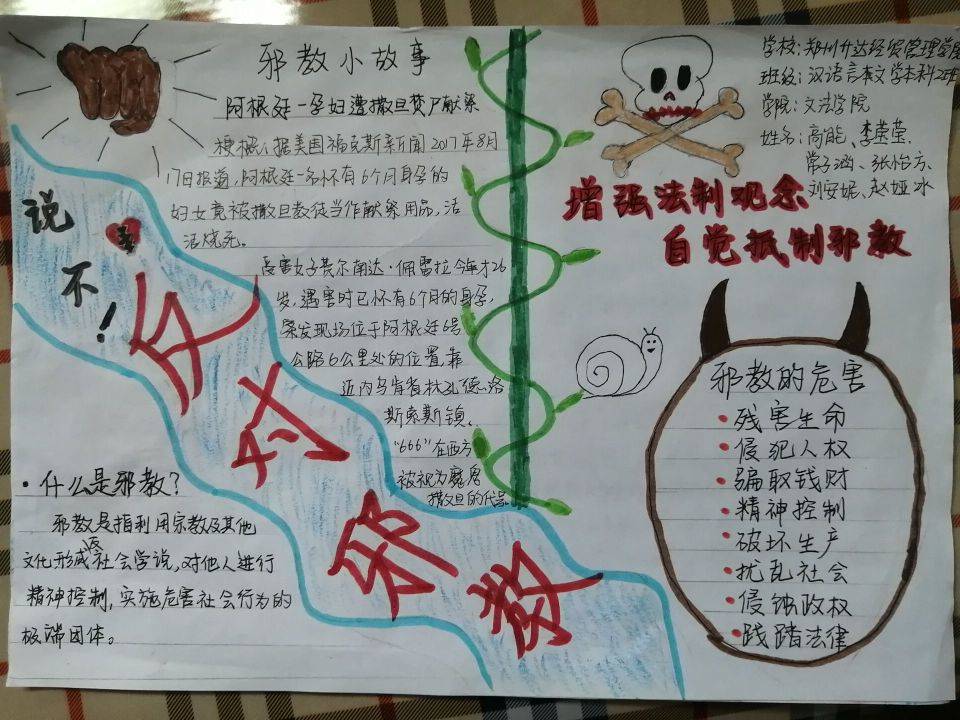 邪教小故事
阿根廷一孕妇遭撒旦焚尸献祭
梗概：据美国福克斯新闻2017年8月
17日报道，阿根廷一名怀有6个月身孕的
妇女竟被撒旦教徒当作献祭用品，活
活烧死。
受害女子费尔南达·佩雷拉今年才26
岁，遇害时已怀有6个月的身孕，
案发现场位于阿根廷6号
公路6公里处的位置，靠
近内乌肯省林孔德洛
斯索斯镇。
“666”在西方
被视为魔鬼
撒旦的代号
说不！
反对邪教
·什么是邪教？
邪教是指利用宗教及其他
文化形成反社会学说，对他人进行
精神控制，实施危害社会行为的
极端团体。
学校：郑州升达经贸管理学院
班级：汉语言本文学本科2班
学院：文法学院
姓名：高能、李莹莹、
常子涵、张怡方、
刘安妮、赵娅冰
增强法制观念
自觉抵制邪教
邪教的危害
·残害生命
·侵犯人权
·骗取钱财
·精神控制
·破坏生产
·扰乱社会
·侵蚀政权
·践踏法律